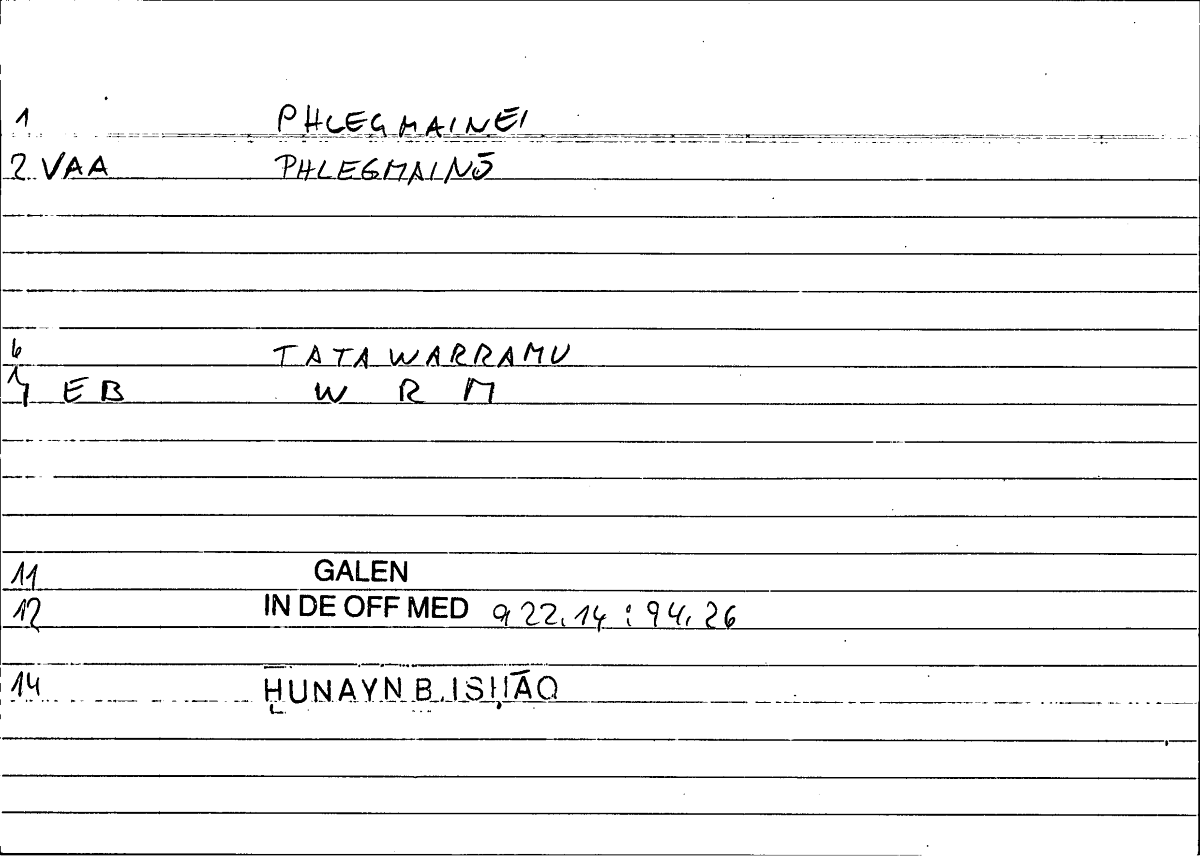 1 PHLEGMAINEI
2 VAA PHLEGMAINŌ
6 TATAWARRAMU
7 EB W R M
11 GALEN
12 IN DE OFF MED 922.14 : 94.26
14 ḤUNAYN B. ISḤĀQ